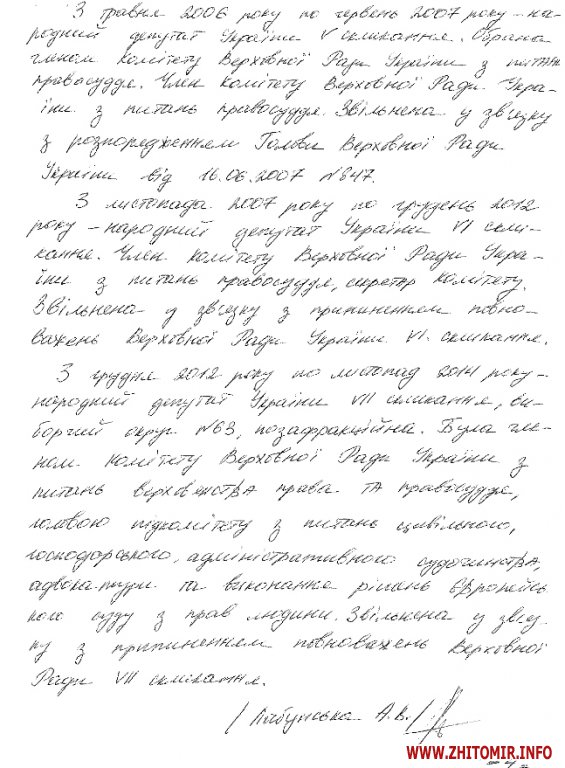 З травня 2006 року по червень 2007 року – на-
родний депутат України V скликання. Обрана
членом Комітету Верховної Ради України з питань
правосуддя. Член Комітету Верховної Ради Укра-
їни з питань правосуддя. Звільнена у зв'язку
з розпорядженням Голови Верховної Ради
України від 16.06.2007 №847.
З листопада 2007 року по грудень 2012
року – народний депутат України VI скли-
кання. Член Комітету Верховної Ради Укра-
їни з питань правосуддя, секретар Комітету.
Звільнена у зв'язку з припиненням повно-
важень Верховної Ради України VI скликання.
З грудня 2012 року по листопад 2014 року –
народний депутат України VII скликання, ви-
борчий округ №63, позафракційна. Була чле-
ном Комітету Верховної Ради України з
питань верховенства права та правосуддя,
головою підкомітету з питань цивільного,
господарського, адміністративного судочинства,
адвокатури та виконання рішень Європейсь
кого суду з прав людини. Звільнена у зв'яз
ку з припиненням повноважень Верховної
Ради VII скликання.
/Лабунська А.В./
WWW.ZHITOMIR.INFO